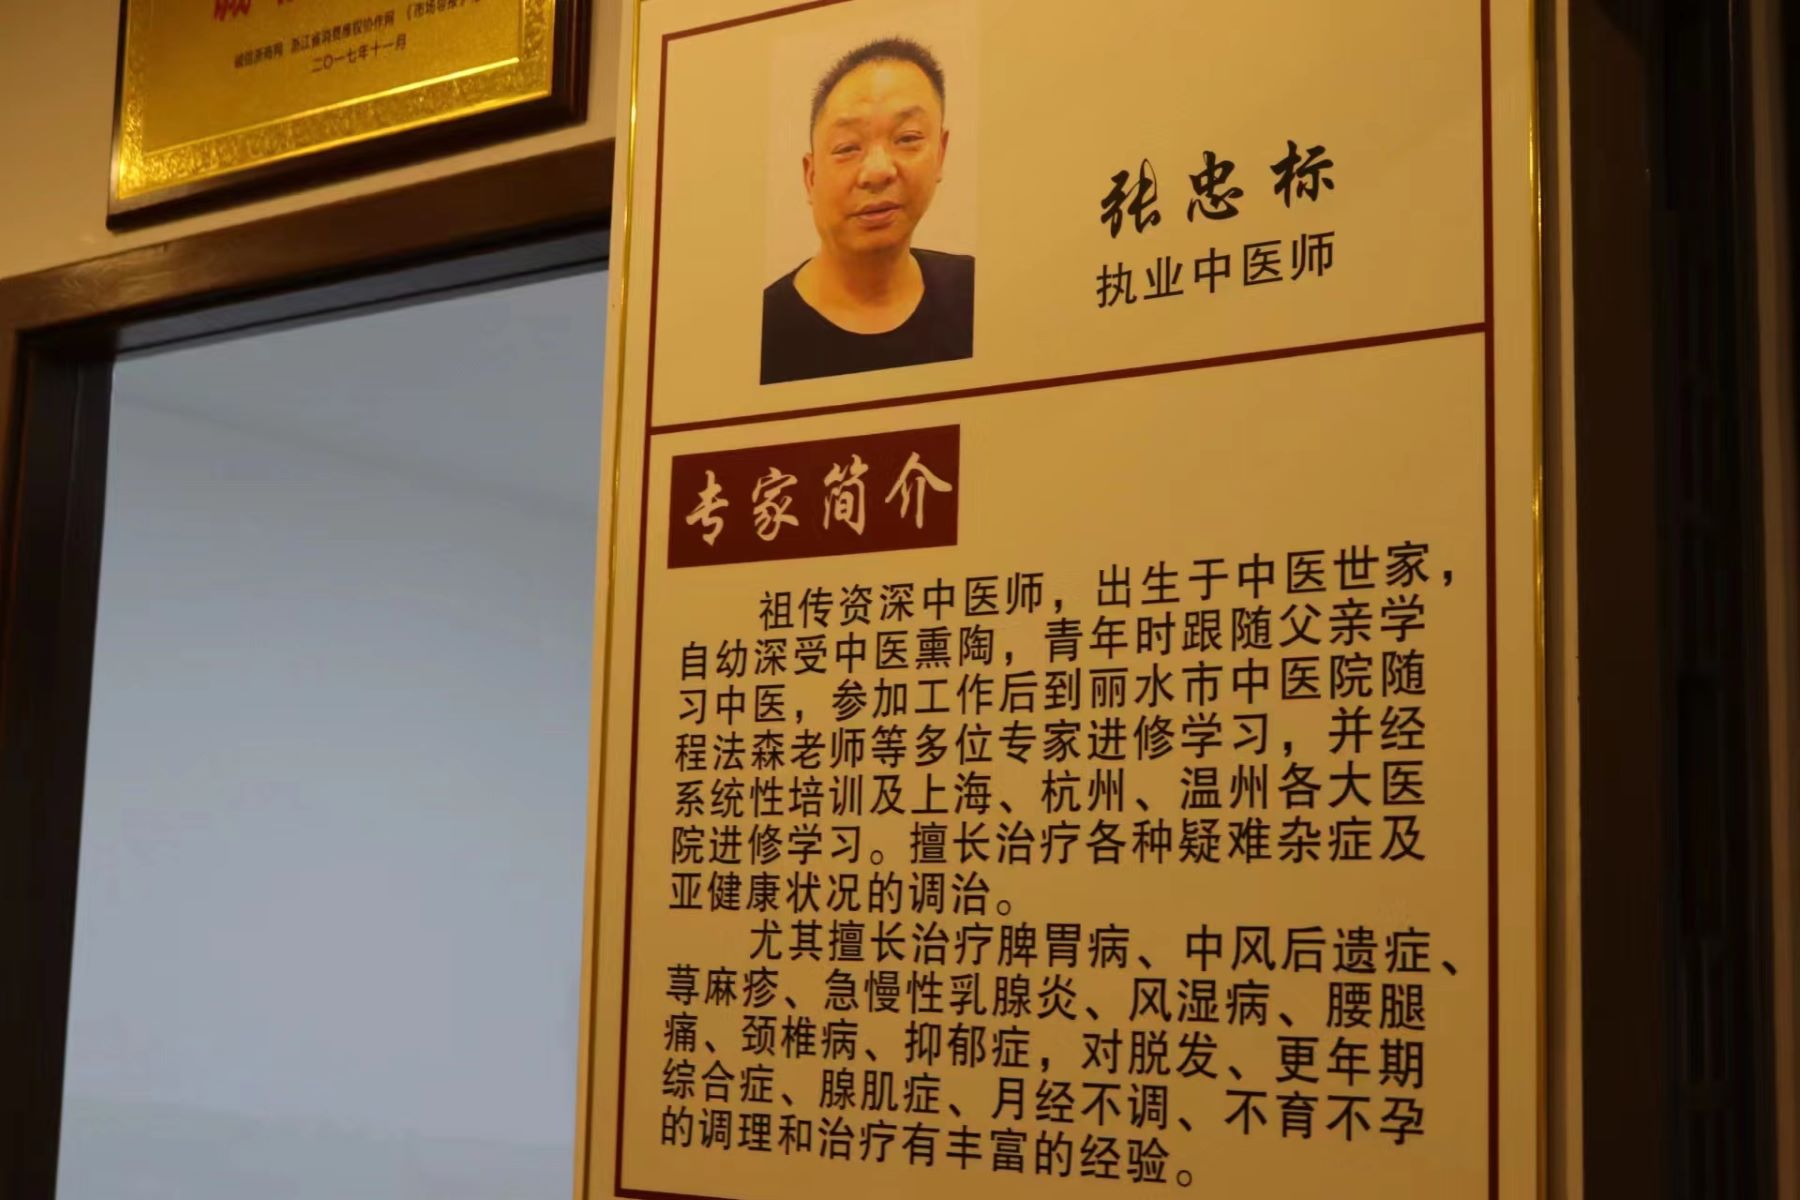 诚信浙商网 浙江省消费维权协作网 《市场导报》
二〇一七年十一月
张忠标
执业中医师
专家简介
祖传资深中医师，出生于中医世家，
自幼深受中医熏陶，青年时跟随父亲学
习中医，参加工作后到丽水市中医院随
程法森老师等多位专家进修学习，并经
系统性培训及上海、杭州、温州各大医
院进修学习。擅长治疗各种疑难杂症及
亚健康状况的调治。
尤其擅长治疗脾胃病、中风后遗症、
荨麻疹、急慢性乳腺炎、风湿病、腰腿
痛、颈椎病、抑郁症，对脱发、更年期
综合症、腺肌症、月经不调、不育不孕
的调理和治疗有丰富的经验。